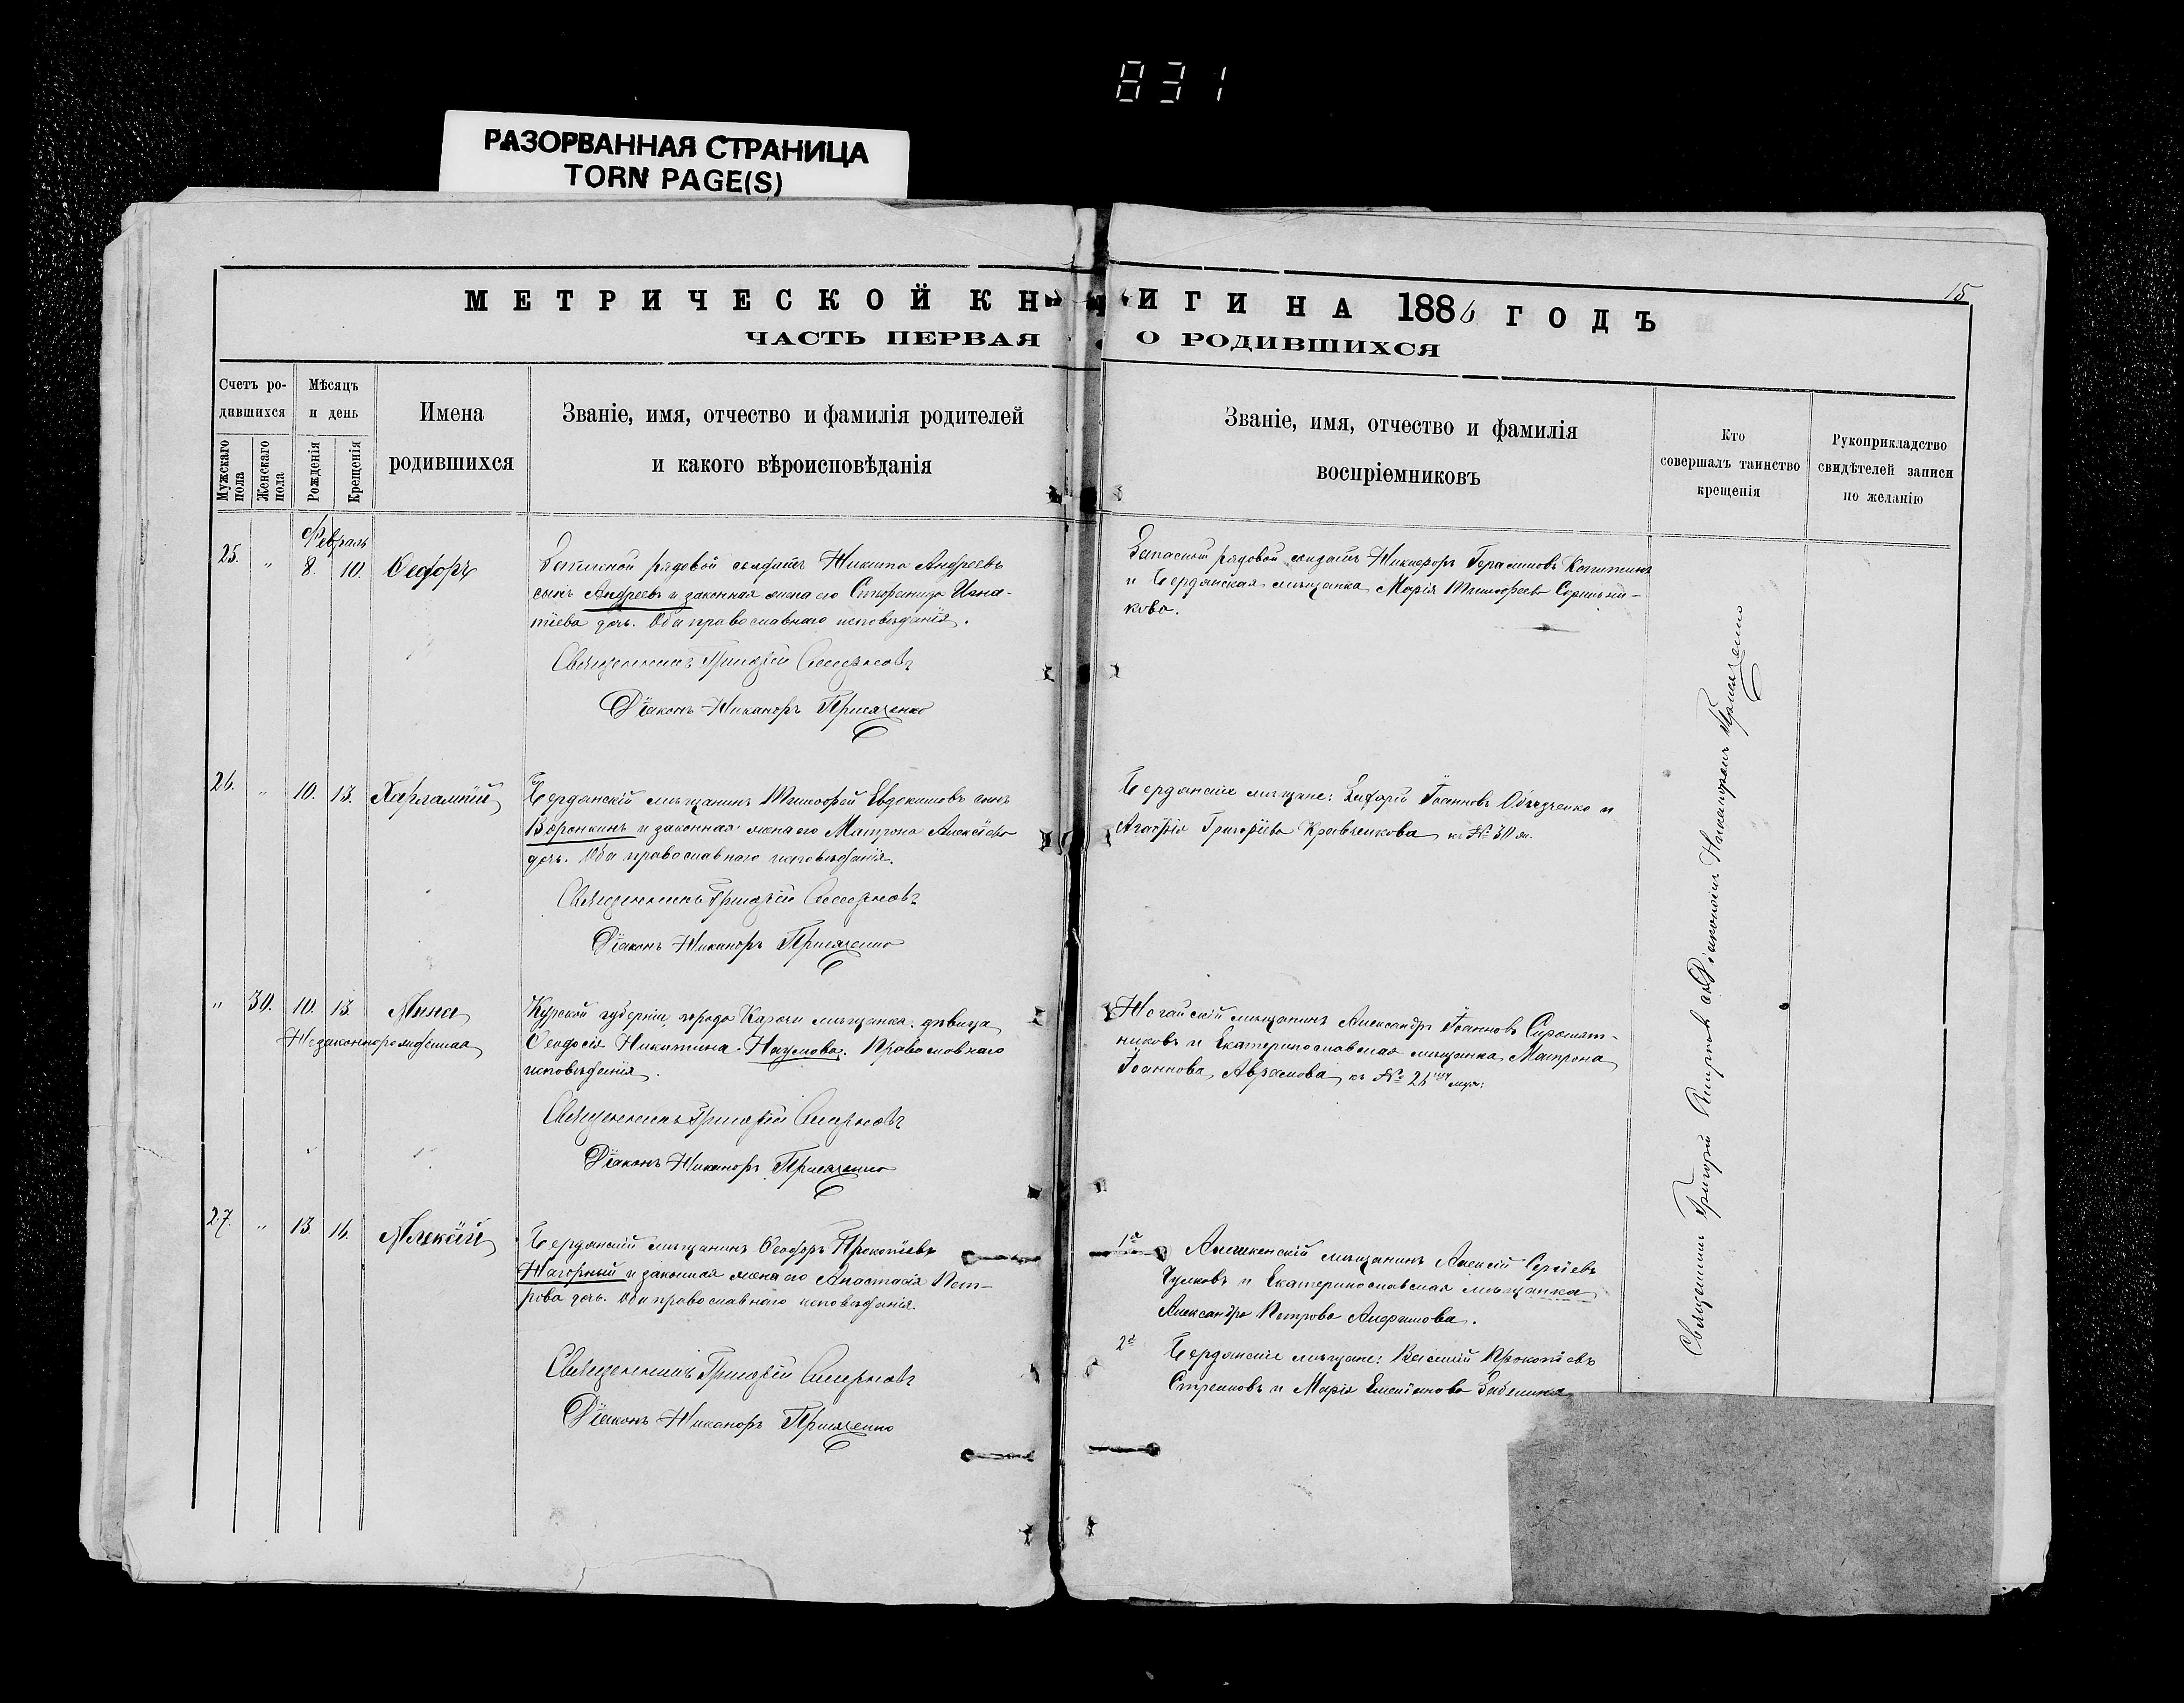 831
РАЗОРВАННАЯ СТРАНИЦА
TORN PAGE(S)
15
МЕТРИЧЕСКОЙ КНИГИ НА 1886 ГОДЪ
ЧАСТЬ ПЕРВАЯ О РОДИВШИХСЯ
Счетъ ро-
дившихся
Мужскаго пола
Женскаго пола
Мѣсяцъ
и день
Рожденія
Крещенія
Имена
родившихся
Званіе, имя, отчество и фамилія родителей
и какого вѣроисповѣданія
Званіе, имя, отчество и фамилія
воспріемниковъ
Кто
совершалъ таинство
крещенія
Рукоприкладство
свидѣтелей записи
по желанію
Февраль
25. " 8. 10. Ѳеодоръ
Запасной рядовой солдатъ Никита Андреевъ
сынъ Андреевъ и законная жена его Стефанида Игна-
тіева дочь. Оба православнаго исповѣданія.
Священникъ Григорій
Діаконъ Никаноръ Присяженко
Запасной рядовой солдатъ Никифоръ Герасимовъ
и Бердянская мѣщанка Марія Тимофеева
кова.
26. " 10. 13. Харлампій
Бердянскій мѣщанинъ Тимофей Евдокимовъ сынъ
Воронкинъ и законная жена его Матрона Алексіева
дочь. Оба православнаго исповѣданія.
Священникъ Григорій
Діаконъ Никаноръ Присяженко
Бердянскіе мѣщане: Захарій Іоанновъ и
Агафія Григоріева Кравченкова къ № 30 ж.
" 30. 10. 13. Анна
Незаконнорожденная
Курской губерніи, города Карочи мѣщанка, дѣвица
Ѳеодосія Никитина Наумова. Православнаго
исповѣданія.
Священникъ Григорій
Діаконъ Никаноръ Присяженко
Ногайскій мѣщанинъ Александръ Іоанновъ Сыромят-
никовъ и Екатеринославская мѣщанка Матрона
Іоаннова Аврамова къ № 26 муж:
27. " 13. 16. Алексій
Бердянскій мѣщанинъ Ѳеодоръ Прокопіевъ
Нагорный и законная жена его Анастасія Пет-
рова дочь. Оба православнаго исповѣданія.
Священникъ Григорій
Діаконъ Никаноръ Присяженко
1я мѣщанинъ Алексій Сергіевъ
Чулковъ и Екатеринославская мѣщанка
Александра Петрова
2я Бердянскіе мѣщане: Василій Прокопіевъ
и Марія Емеліанова
Священникъ Григорій съ Діакономъ Никаноромъ Присяженко